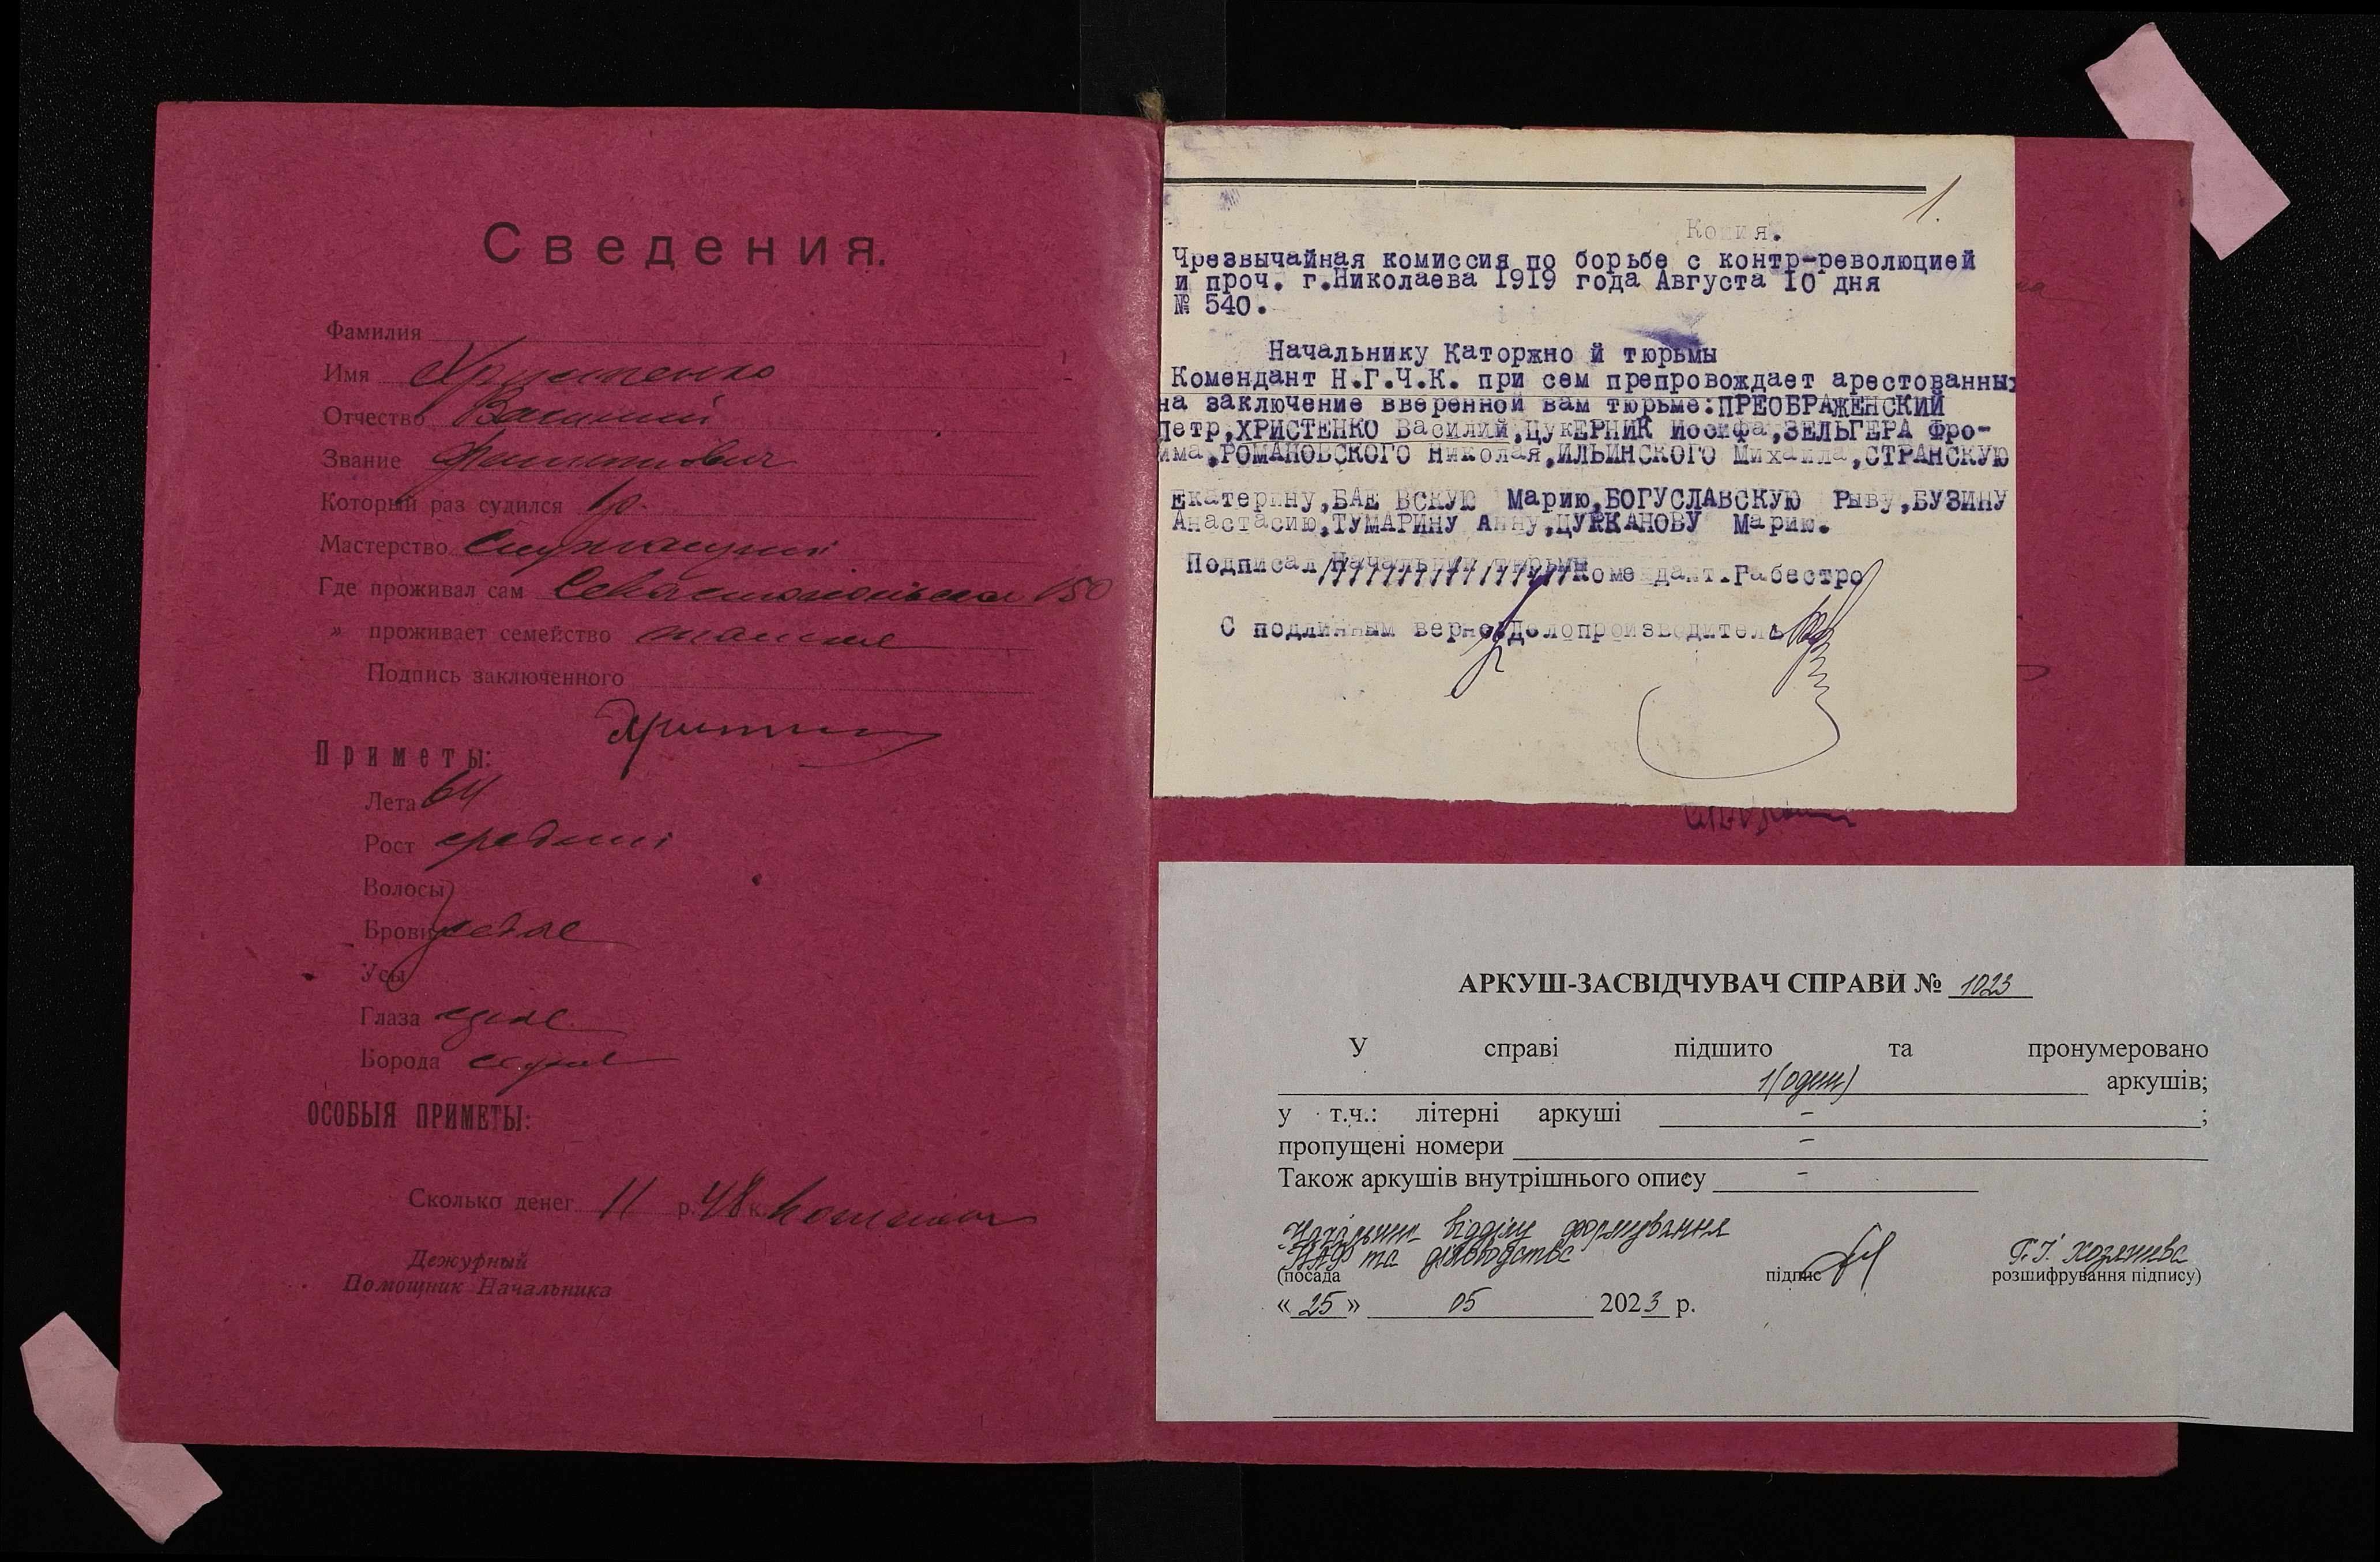 Сведения.
Фамилия
Имя Христенко
Отчество Василий
Звание Филиппович
Который раз судился 1 р.
Мастерство Служащий
Где проживал сам Севастопольская 150
» проживает семейство
Подпись заключенного
Приметы:
Лета 64
Рост средний
Волосы
Брови седые
Усы
Глаза
Борода
ОСОБЫЯ ПРИМЕТЫ:
Сколько денег 11 р. 48 к.
Дежурный
Помощник Начальника
1.
Копия.
Чрезвычайная комиссия по борьбе с контр-революцией
и проч. г.Николаева 1919 года Августа 10 дня
№ 540.
Начальнику Каторжно й тюрьмы
Комендант Н.Г.Ч.К. при сем препровождает арестованных
на заключение вверенной вам тюрьме:ПРЕОБРАЖЕНСКИЙ
Петр,ХРИСТЕНКО Василий,ЦукЕРНИК Иосифа,ЗЕЛЬГЕРА Фро-
има,РОМАНОВСКОГО Николая,ИЛЬИНСКОГО Михаила,СТРАНСКУЮ
Екатерину,БАЕ ВСКУЮ Марию,БОГУСЛАВСКУЮ Рыву,БУЗИНУ
Анастасию,ТУМАРИНУ Анну,ЦУРКАНОВУ Марию.
Подписал Начальник тюрьмы Комендант.Габестро
С подлинным верно:Делопроизводитель
АРКУШ-ЗАСВІДЧУВАЧ СПРАВИ № 1023
У справі підшито та пронумеровано
1(один) аркушів;
у т.ч.: літерні аркуші – ;
пропущені номери –
Також аркушів внутрішнього опису –
Начальник відділу формування
НАФ та діловодства
Г.І. Хозяшева
(посада підпис розшифрування підпису)
« 25 » 05 2023 р.